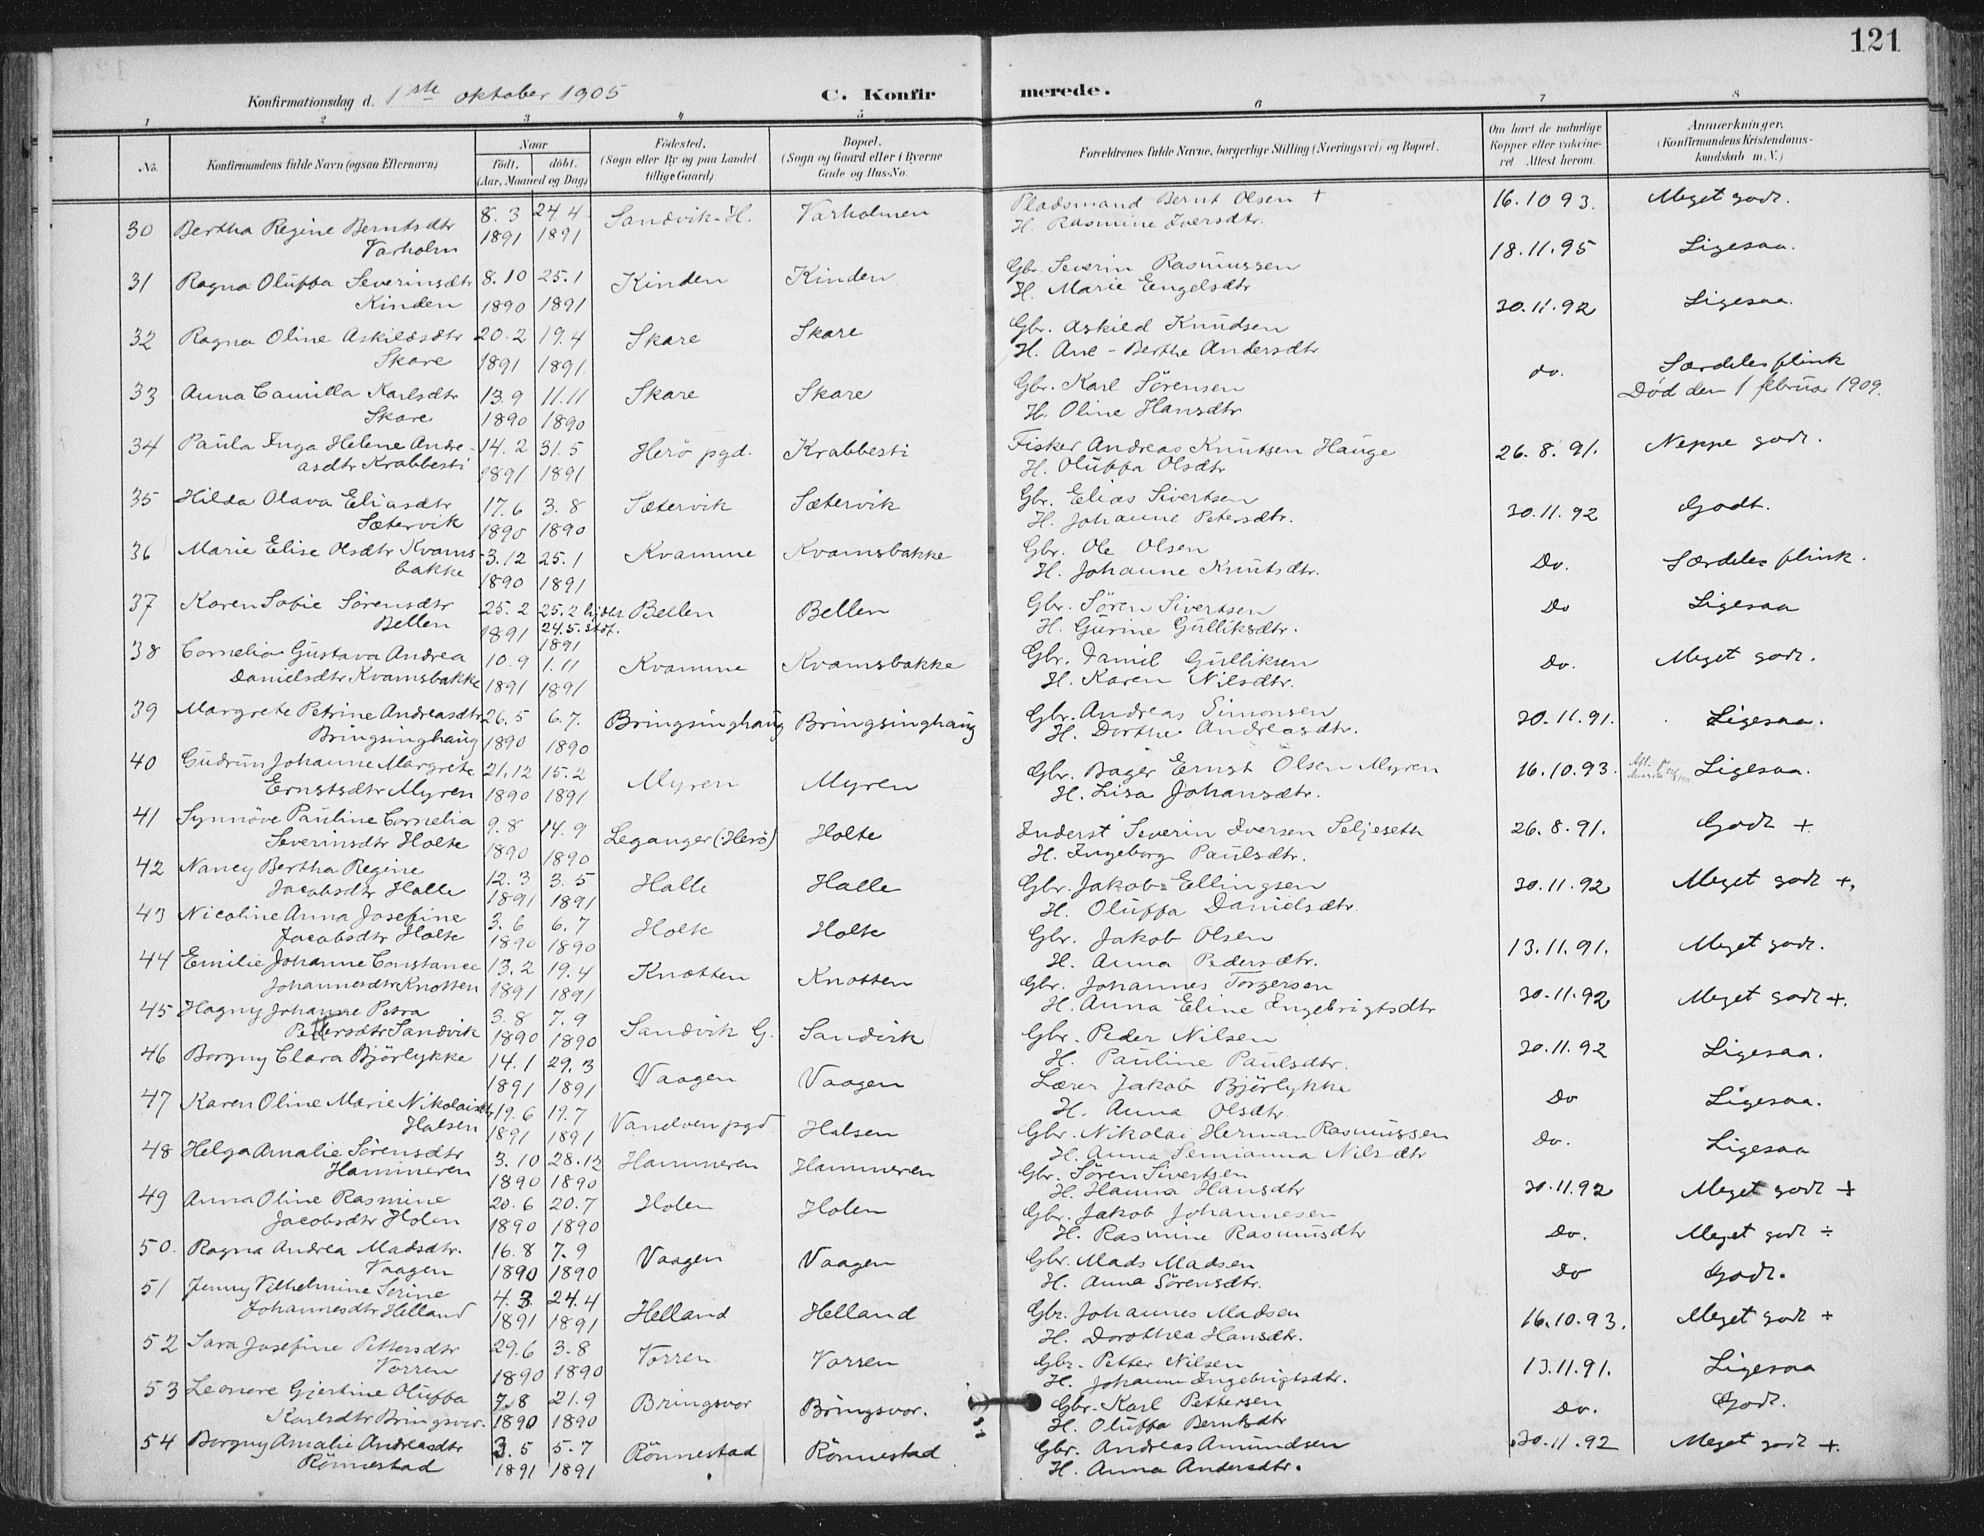 121
Konfirmationsdag d. 1ste oktober 1905 C. Konfirmerede.
1 2 3 4 5 6 7 8
No. Konfirmandens fulde Navn (ogsaa Efternavn) Naar Födt. döbt. (Aar, Maaned og Dag) Födested. (Sogn eller By og paa Landet tillige Gaard) Bopæl. (Sogn og Gaard eller i Byerne Gade og Hus-No. Forældrenes fulde Navne, borgerlige Stilling (Næringsvei) og Bopæl. Om havt de naturlige Kopper eller vaccineret Attest herom. Anmærkninger. (Konfirmandens Kristendomskundskab m. V.)
30 Bertha Regine Berntsdtr 8. 3 24. 4 Sandvik-H. Varholmen Pladsmand Bernt Olsen + 16.10 93. Meget godt.
Varholm 1891 1891 H. Rasmine Iversdtr.
31 Ragna Oluffa Severinsdtr 8. 10 25. 1 Kinden Kinden Gbr. Severin Rasmussen 18.11.95 Ligesaa.
Kinden 1890 1891 H. Marie Engelsdtr
32 Ragna Oline Askildsdtr 20. 2 19. 4 Skare Skare Gbr. Askild Knudsen 30.11.92 Ligesaa.
Skare 1891 1891. H. Ane-Berthe Andersdtr
33 Anna Camilla Karlsdtr 13. 9 11. 11 Skare Skare Gbr. Karl Sörensen do. Særdeles flink
Skare 1890 1890 H. Oline Hansdtr Död den 1 februar 1909.
34 Paula Inga Helene Andre- 14. 2 31. 5 Herö pgd. Krabbesti Fisker Andreas Knutsen Hauge 26. 8. 91. Neppe godt.
asdtr Krabbesti 1891 1891 H. Oluffa Olsdtr
35 Hilda Olava Eliasdtr 17. 6 3. 8 Sætervik Sætervik Gbr. Elias Sivertsen 30.11.92 Godt.
Sætervik 1890 1890 H. Johanne Petersdtr.
36 Marie Elise Olsdtr Kvams- 3. 12 25. 1 Kvamme Kvamsbakke Gbr. Ole Olsen Do. Særdeles flink.
bakke 1890 1891 H. Johanne Knutsdtr.
37 Karen Sofie Sörensdtr 25. 2 25. 2 hjdbt Bellen Bellen Gbr. Sören Sivertsen Do Ligesaa
Bellen 1891 24. 5. stdf. 1891 H. Gurine Gulliksdtr.
38 Cornelia Gustava Andrea 10. 9 1. 11 Kvamme Kvamsbakke Gbr. Daniel Gulliksen Do. Meget godt.
Danielsdtr. Kvamsbakke 1891 1891 H. Karen Nilsdtr.
39 Margrete Petrine Andreasdtr 26. 5 6. 7. Bringsinghaug Bringsinghaug Gbr. Andreas Simonsen 30.11.91. Ligesaa.
Bringsinghaug 1890 1890 H. Dorthe Andreasdtr.
40 Gudrun Johanne Margrete 21. 12 15. 2 Myren Myren Gbr. Bager Ernst Olsen Myren 16.10.93. Ligesaa.
Ernstsdtr Myren 1890 1891 H. Lisa Johansdtr.
41 Synnöve Pauline Cornelia 9. 8 14. 9 Leganger (Herö) Holte Inderst Severin Iversen Seljeseth 26. 8. 91. Godt +
Severinsdtr Holte 1890 1890 H. Ingeborg Paulsdtr.
42 Nancy Bertha Regine 12. 3 3. 5 Halle Halle Gbr. Jakob Ellingsen 30.11.92 Meget godt +.
Jacobsdtr Halle 1891 1891 H. Oluffa Danielsdtr
43 Nicoline Anna Josefine 3. 6 6. 7 Holte Holte Gbr. Jakob Olsen 13.11.91. Meget godt.
Jacobsdtr Holte 1890 1890 H. Anna Pedersdtr.
44 Emilie Johanne Constance 13. 2 19. 4 Knotten Knotten Gbr. Johannes Torgersen 30.11.92 Meget godt +.
Johannesdtr Knotten 1891 1891 H. Anna Eline Ingebrigtsdtr
45 Hagny Johanne Petra 3. 8 7. 9 Sandvik G. Sandvik Gbr. Peder Nilsen 30.11.92 Ligesaa.
Pedersdtr Sandvik 1890 1890 H. Pauline Paulsdtr.
46 Borgny Clara Björlykke 14. 1 29. 3 Vaagen Vaagen Lærer Jakob Björlykke Do Ligesaa.
1891 1891 H. Anna Olsdtr
47 Karen Oline Marie Nikolaisdtr 19. 6 19. 7 Vandven pgd Halsen Gbr. Nikolai Herman Rasmussen Do. Ligesaa
Halsen 1891 1891 H. Anna Semianna Nilsdtr
48 Helga Amalie Sörensdtr 3. 10 28. 12 Hamneren Hamneren Gbr. Sören Sivertsen 30.11.92 Meget godt +
Hamneren 1890 1890 H. Hanna Hansdtr
49 Anna Oline Rasmine 20. 6 20. 7 Holen Holen Gbr. Jakob Johannesen Do. Meget godt ÷
Jacobsdtr Holen 1890 1890 H. Rasmine Rasmusdtr
50. Ragna Andrea Madsdtr. 16. 8 7. 9 Vaagen Vaagen Gbr. Mads Madsen Do Godt.
Vaagen 1890 1890 H. Anna Sörensdtr.
51 Jenny Vilhelmine Serine 4. 3 24. 4 Helland Helland Gbr. Johannes Madsen 16.10.93. Meget godt ÷
Johannesdtr Helland 1891 1891 H. Dorothea Hansdtr.
52 Sara Josefine Pettersdtr 29. 6 3. 8 Vorren Vorren Gbr. Petter Nilsen 13.11.91. Ligesaa
Vorren 1890 1890 H. Johanne Ingebrigtsdtr.
53 Leonore Gjertine Oluffa 7. 8 21. 9 Bringsvor Bringsvor. Gbr. Karl Pettersen Do. Godt.
Karlsdtr Bringsvor. 1890 1890 H. Oluffa Berntsdtr
54 Borgny Amalie Andreasdtr 3. 5 5. 7 Rönnestad Rönnestad Gbr. Andreas Amundsen 30.11.92 Meget godt +.
Rönnestad 1891 1891 H. Anna Andersdtr.